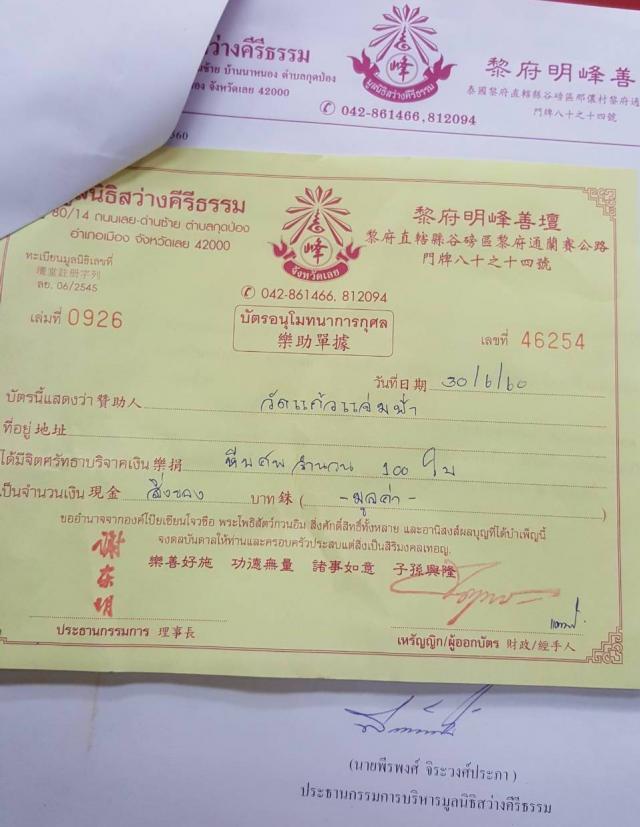 สว่างคีรีธรรม
黎府明峰善
ด่านซ้าย บ้านนาหนอง ตำบลกุดป่อง
泰國黎府直轄縣谷磅區那儂村黎府通
จังหวัดเลย 42000
門牌八十之十四號
峰
มูลนิธิสว่างคีรีธรรม
042-861466,812094
มูลนิธิสว่างคีรีธรรม
黎府明峰善壇
80/14 ถนนเลย-ด่านซ้าย ตำบลกุดป่อง
黎府直轄縣谷磅區黎府通蘭賽公路
อำเภอเมือง จังหวัดเลย 42000
門牌八十之十四號
峰
จังหวัดเลย
ทะเบียนมูลนิธิเลขที่
壇堂註册字列
ลย. 06/2545
042-861466, 812094
เล่มที่ 0926
บัตรอนุโมทนาการกุศล
樂助單據
เลขที่ 46254
วันที่日期 30/6/60
บัตรนี้แสดงว่า 贊助人 วัดแก้วแจ่มฟ้า
ที่อยู่ 地址
ได้มีจิตศรัทธาบริจาคเงิน 樂捐 หีบศพ จำนวน 100 ใบ
เป็นจำนวนเงิน 現金 สิ่งของ บาท 銖 ( -มูลค่า- )
ขออำนาจจากองค์โป๊ยเซียนโจวซือ พระโพธิสัตว์กวนอิม สิ่งศักดิ์สิทธิ์ทั้งหลาย และอานิสงส์ผลบุญที่ได้บำเพ็ญนี้
จงดลบันดาลให้ท่านและครอบครัวประสบแต่สิ่งเป็นสิริมงคลเทอญ.
樂善好施 功德無量 諸事如意 子孫興隆
謝东明
ประธานกรรมการ 理事長
เหรัญญิก/ผู้ออกบัตร 財政/經手人
(นายพีรพงศ์ จิระวงศ์ประภา)
ประธานกรรมการบริหารมูลนิธิสว่างคีรีธรรม